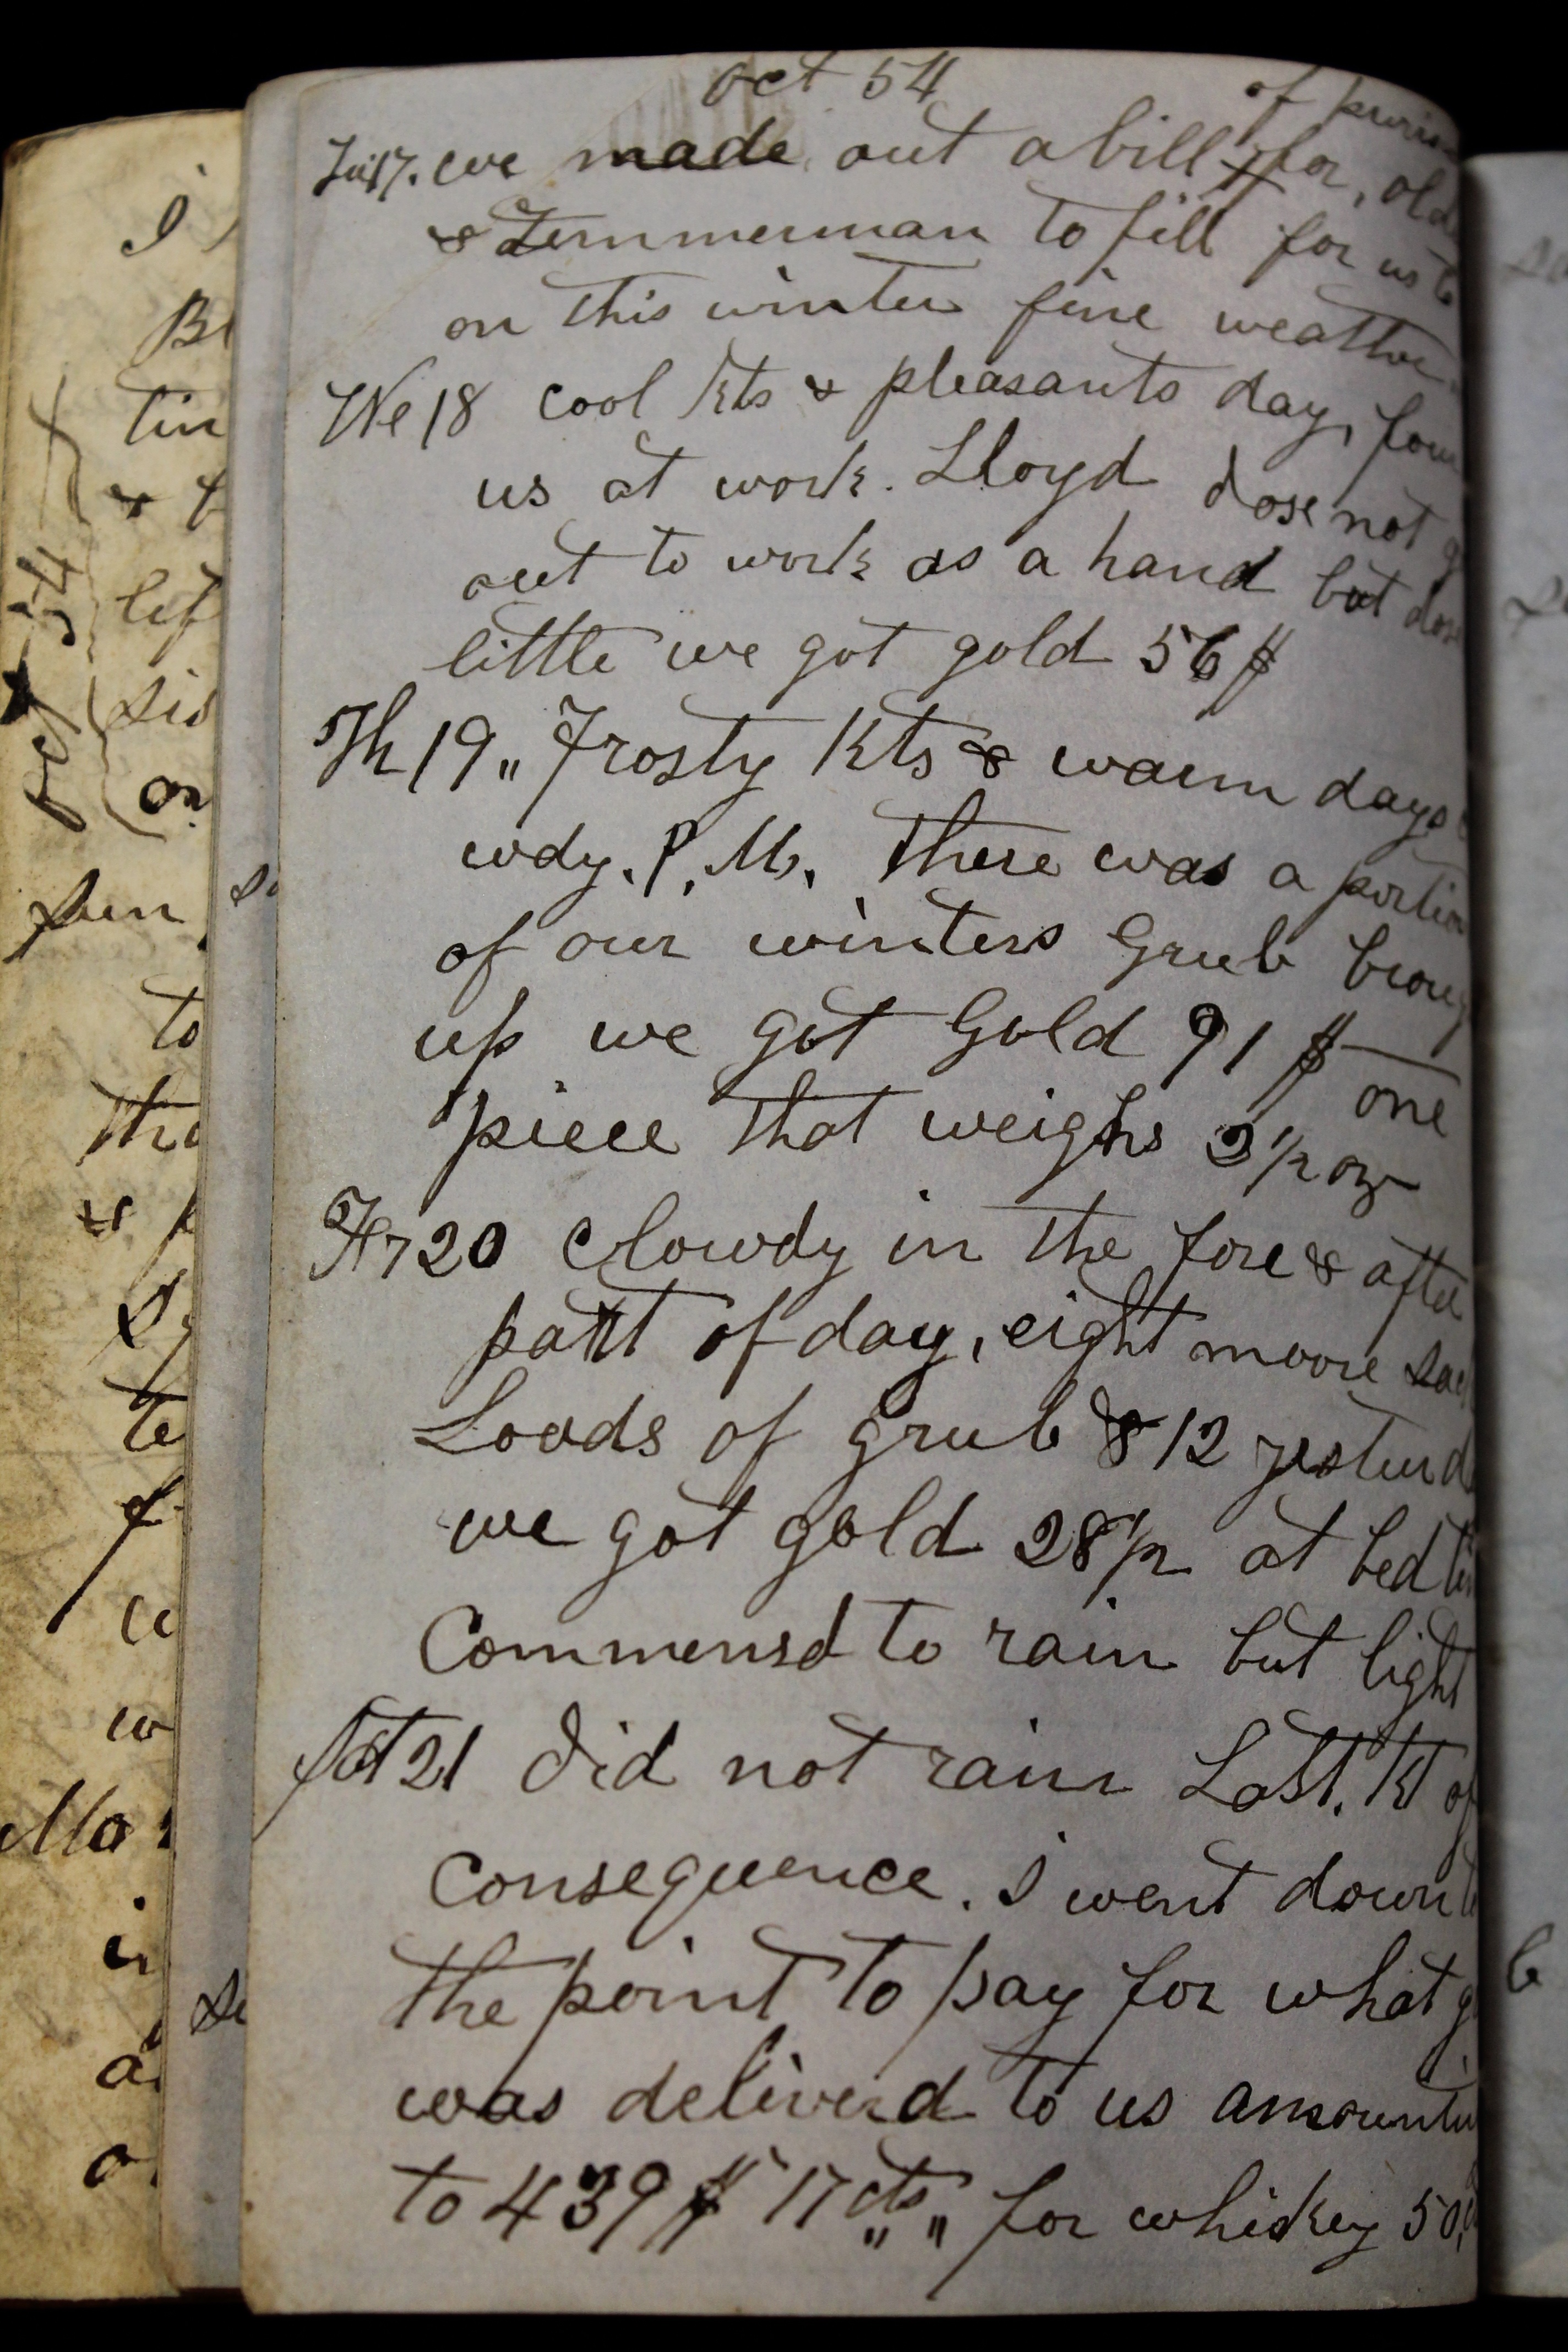 oct 54
of
Tu 17. we made out a bill for, old
& Zimmerman to fill for us to
on this winter fine weather
We 18 cool Kts & pleasants day, four
us at work. Lloyd dose not g
out to work as a hand but dose
little we got gold 56 $
Th 19 „ Frosty Kts & warm days
wdy. P. M. there was a portion
of our winters Grub broug
up we got Gold 91 $ — one
piece that weighs 3 1/2 oz
Fr 20 Clowdy in the fore & after
part of day, eight moore sac
Loads of grub & 12 yesturd
we got gold 28 1/2 at bed tim
Commensd to rain but light
Sat 21 did not rain Last. Kt of
Consequence. I went down t
the point to pay for what g
was deliverd to us amountin
to 439 $ 17 cts „ for whiskey 50,
I
B
tin
& f
lif
sid
on
oct 54
sun
to
the
&
te
c
w
Mo
in
a
o